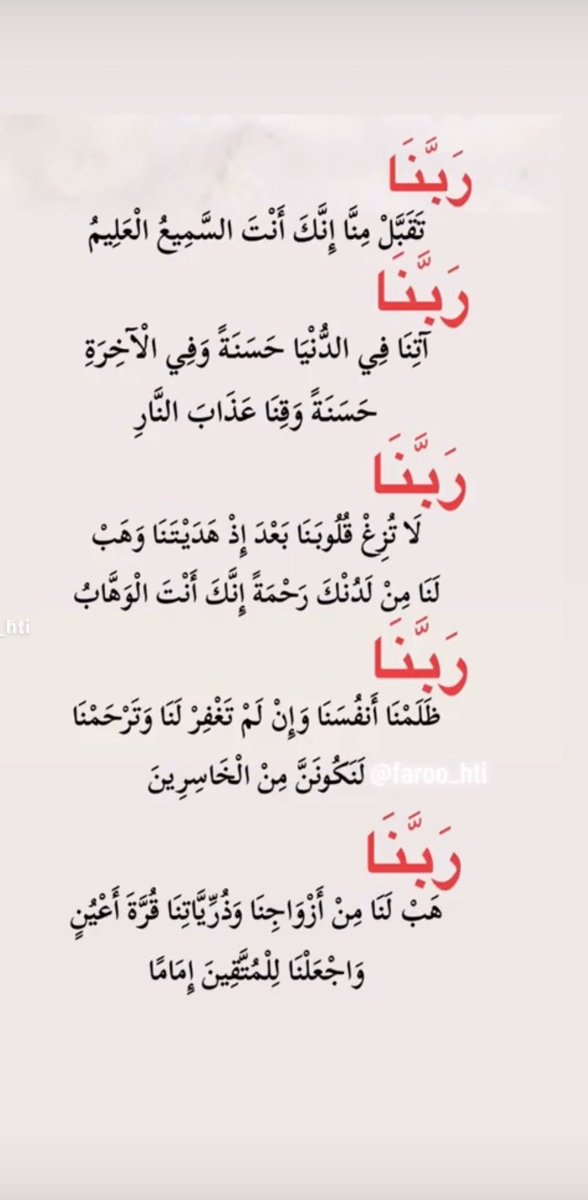 رَبَّنَا
تَقَبَّلْ مِنَّا إِنَّكَ أَنْتَ السَّمِيعُ الْعَلِيمُ
رَبَّنَا
آتِنَا فِي الدُّنْيَا حَسَنَةً وَفِي الْآخِرَةِ
حَسَنَةً وَقِنَا عَذَابَ النَّارِ
رَبَّنَا
لَا تُزِغْ قُلُوبَنَا بَعْدَ إِذْ هَدَيْتَنَا وَهَبْ
لَنَا مِنْ لَدُنْكَ رَحْمَةً إِنَّكَ أَنْتَ الْوَهَّابُ
_hti
رَبَّنَا
ظَلَمْنَا أَنفُسَنَا وَإِنْ لَمْ تَغْفِرْ لَنَا وَتَرْحَمْنَا
لَنَكُونَنَّ مِنْ الْخَاسِرِينَ
@faroo_hti
رَبَّنَا
هَبْ لَنَا مِنْ أَزْوَاجِنَا وَذُرِّيَّاتِنَا قُرَّةَ أَعْيُنٍ
وَاجْعَلْنَا لِلْمُتَّقِينَ إِمَامًا